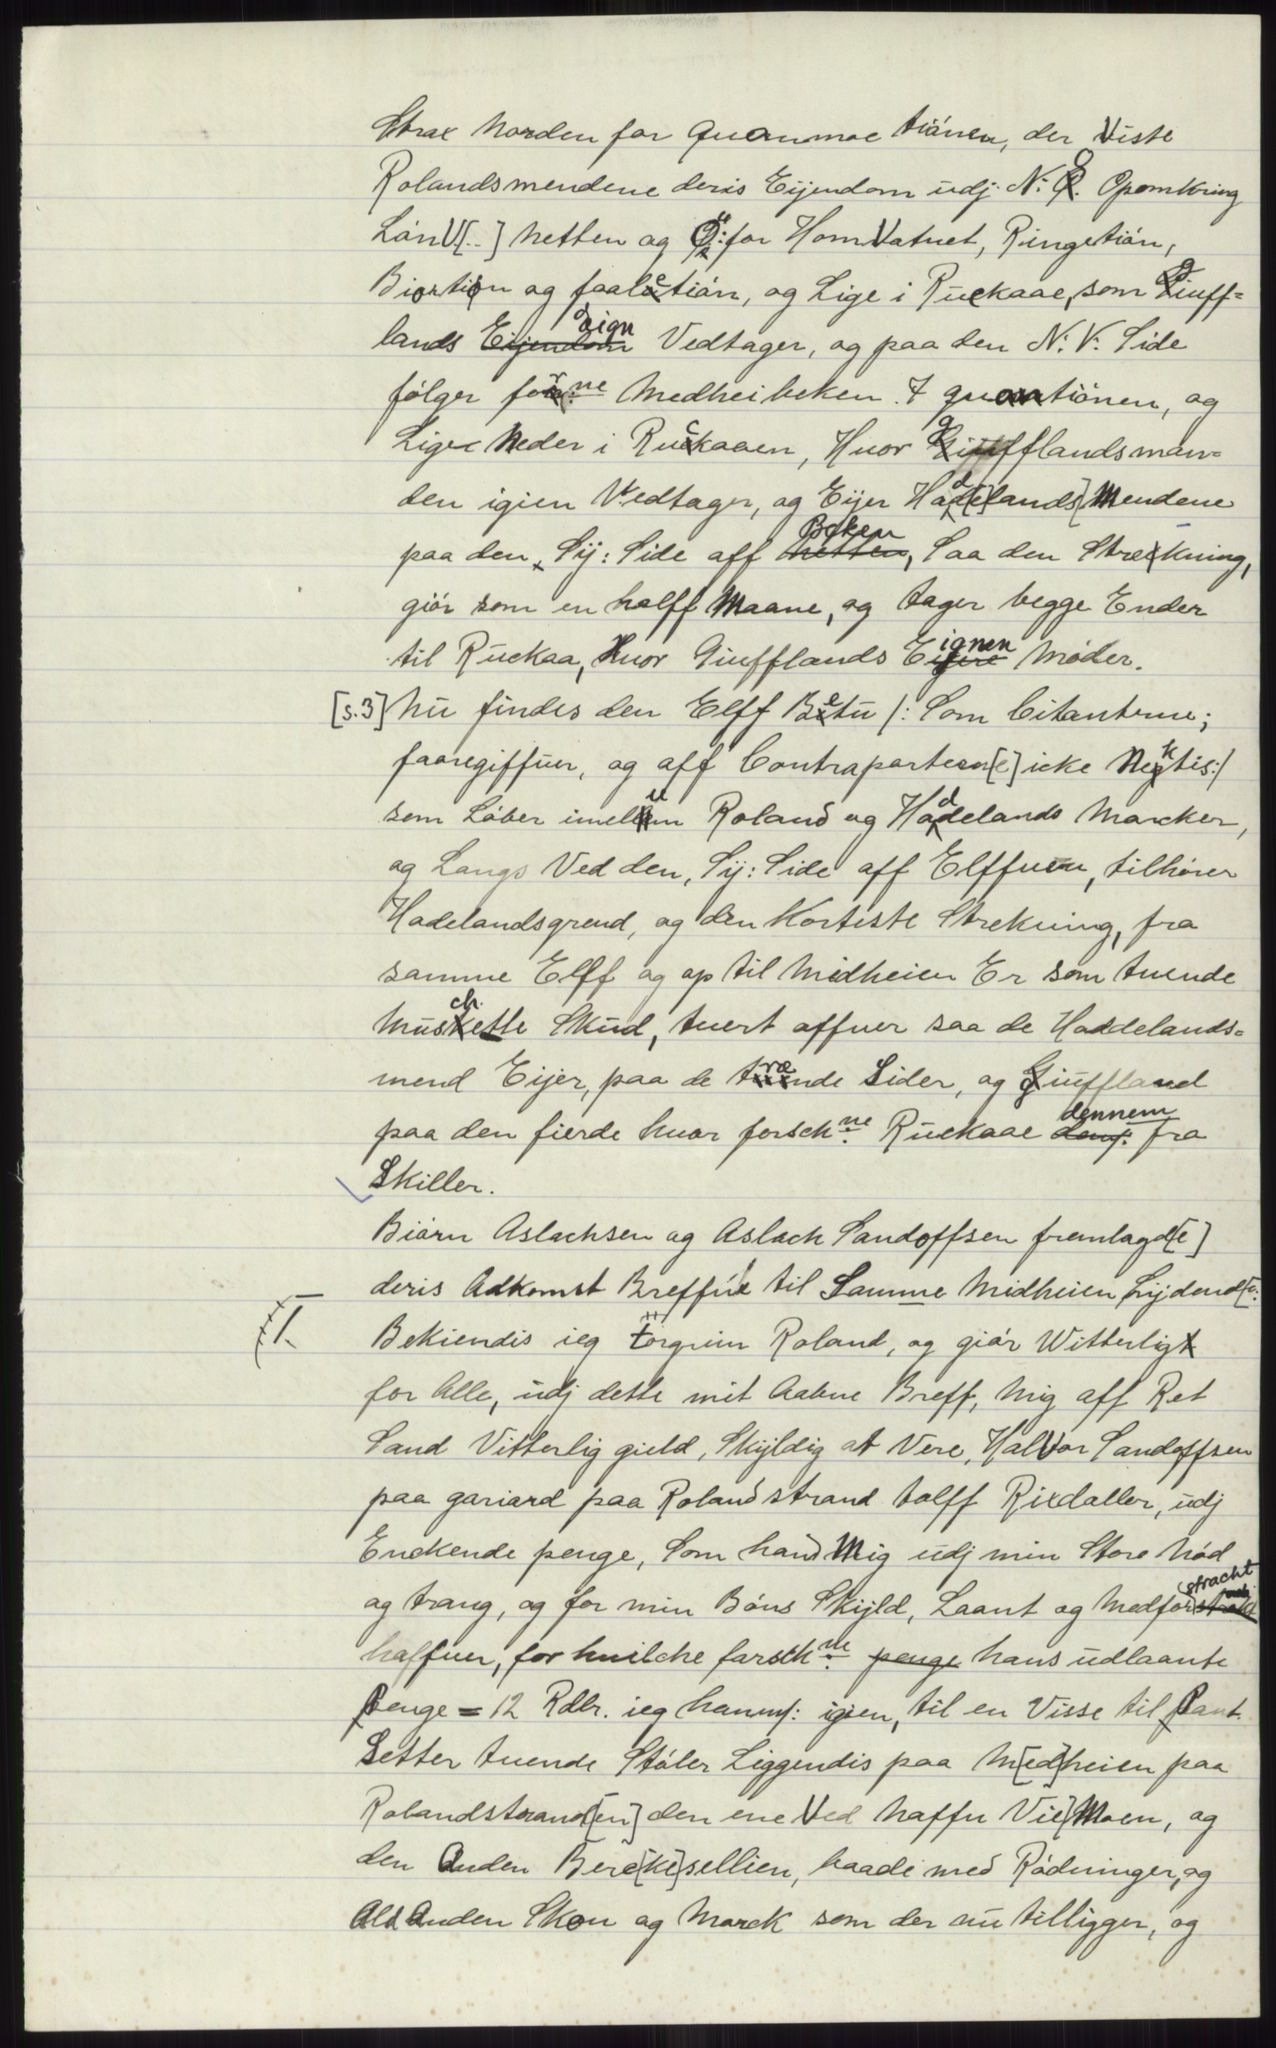 Strax Norden for Quanmoe tiónen, der Viste
Rolandsmendene deris Eijendom udj N: Ø. Opomkring
LónV[..] Netten og Ø: for HomVatnet, Ringetión,
Biortión og faaletión, og Lige i Ruckaae, som Giuff=
lands Eign Vedtager, og paa den N: V: Side
fólger for:ne Medheibeken. I quantiónen, og
Liger Neder i Ruckaaen, Huor Giufflandsman=
den igien Vedtager, og Eijer Hade[lands] Mendene
paa den, Sij: Side aff Beken, Saa den Strekning,
giór som en halff Maane, og tager begge Ender
til Ruckaa, Huor Giufflands Eignen Móder.
[s.3] Nu findes den Elff Betu /: Som Citanterne;
faaregiffuer, og aff Contrapartern[e] icke Nektis:/
som Lóber imellum Roland og Hadelands Marcker,
og Langs Ved den, Sij: Side aff Elffuen, tilhórer
Hadelandsgrend, og den Korteste Strekning, fra
samme Elff og op til Midheien Er som tuende
Muschette Skud, tuert offuer saa de Haddelands=
mend Eijer, paa de trænde Sider, og Giuffland
paa den fierde huor forsch:ne Ruckaae dennem fra
Skiller.
Biórn Aslachsen og Aslach Sandoffsen fremlagd[e]
deris Adkomst Breffue til Samme Midheien Lijdend[e:
I. Bekiendis ieg törgrim Roland, og giór Witterlig
for Alle, udj dette mit Aabne Breff, Mig aff Ret
Sand Vitterlig gield, Skijldig at Vere, Halvor Sandoffsen
paa gariard paa Rolandstrand tolff Rixdaller, udj
Enckende penge, Som hand Mig udj min Store Nód
og trang, og for min Bóns Skijld, Laant og Medforstracht
haffuer, for huilche forsch:ne hans udlaante
Penge = 12 Rdlr. ieg hannn: igien, til en Visse til Pant.
Setter tuende Stóler Liggendis paa M[ed]heien paa
Rolandstrand[en] den ene Ved haffu Vie] Moen, og
den Anden Berc[ke]sellien, baade med Ródninger, og
Ald Anden Skou og Marck som der nu tilligger, og